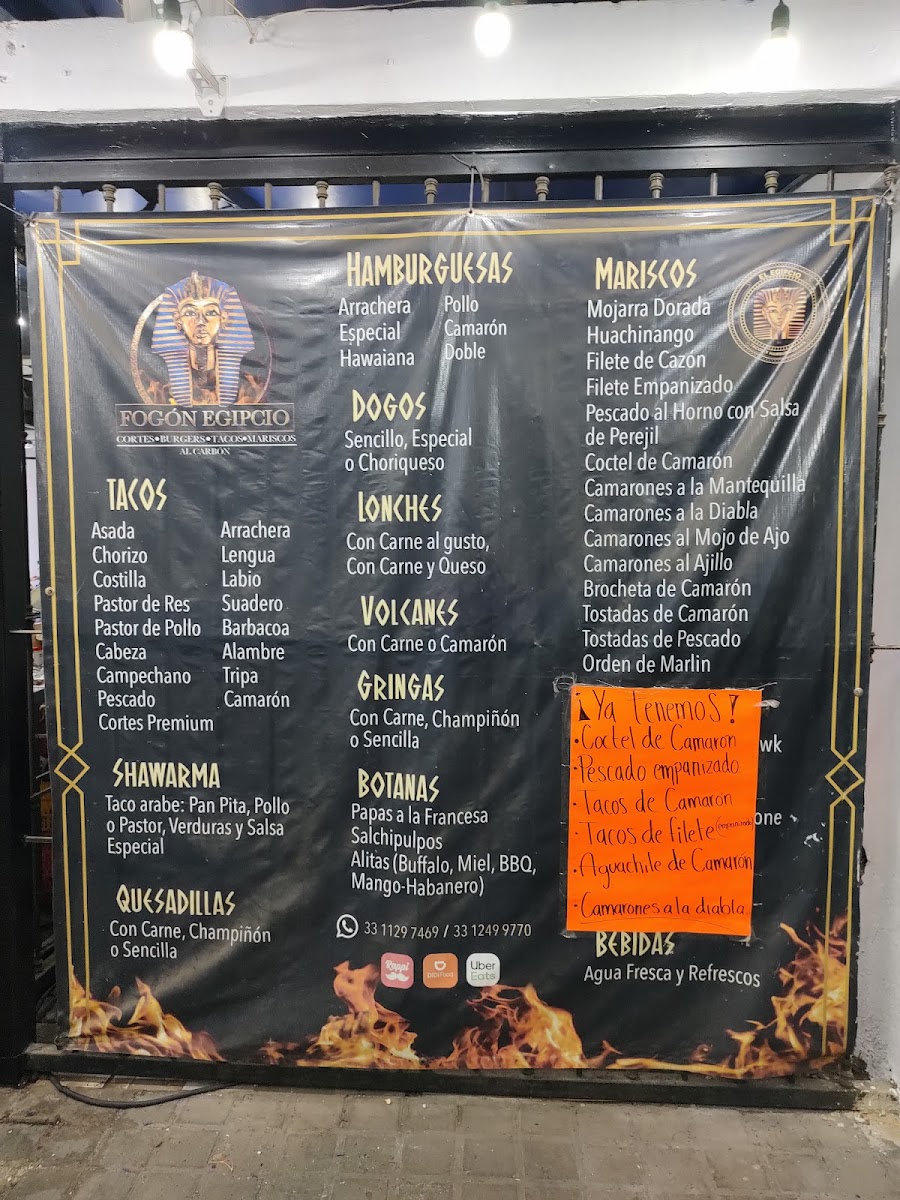 FOGÓN EGIPCIO
CORTES•BURGERS•TACOS•MARISCOS
AL CARBÓN
TACOS
Asada
Chorizo
Costilla
Pastor de Res
Pastor de Pollo
Cabeza
Campechano
Pescado
Cortes Premium
Arrachera
Lengua
Labio
Suadero
Barbacoa
Alambre
Tripa
Camarón
SHAWARMA
Taco arabe: Pan Pita, Pollo
o Pastor, Verduras y Salsa
Especial
QUESADILLAS
Con Carne, Champiñón
o Sencilla
HAMBURGUESAS
Arrachera
Especial
Hawaiana
Pollo
Camarón
Doble
DOGOS
Sencillo, Especial
o Choriqueso
LONCHES
Con Carne al gusto,
Con Carne y Queso
VOLCANES
Con Carne o Camarón
GRINGAS
Con Carne, Champiñón
o Sencilla
BOTANAS
Papas a la Francesa
Salchipulpos
Alitas (Buffalo, Miel, BBQ,
Mango-Habanero)
33 1129 7469 / 33 1249 9770
Rappi
DiDi Food
Uber
Eats
MARISCOS
EL EGIPCIO
Mojarra Dorada
Huachinango
Filete de Cazón
Filete Empanizado
Pescado al Horno con Salsa
de Perejil
Coctel de Camarón
Camarones a la Mantequilla
Camarones a la Diabla
Camarones al Mojo de Ajo
Camarones al Ajillo
Brocheta de Camarón
Tostadas de Camarón
Tostadas de Pescado
Orden de Marlin
¡Ya tenemos!
• Coctel de Camarón
• Pescado empanizado
• Tacos de Camarón
• Tacos de filete (empanizado)
• Aguachile de Camarón
• Camarones a la diabla
BEBIDAS
Agua Fresca y Refrescos